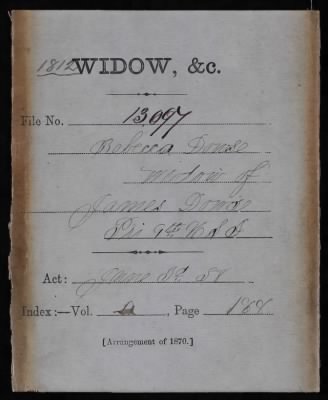 1812 WIDOW, &c.
File No. 13,097
Rebecca Dowse
Widow of
James Dowse
Pri 9th U S I
Act: June
Index:—Vol. a, Page 188
[Arrangement of 1870.]